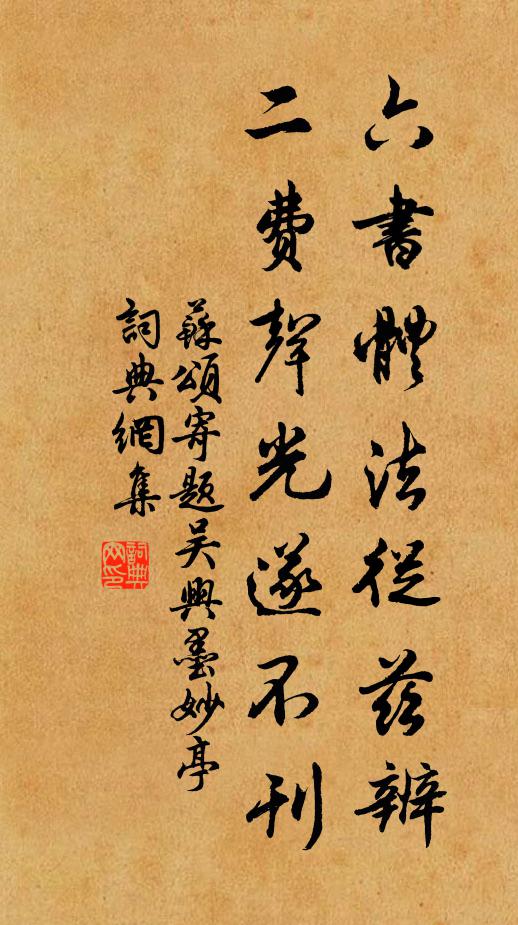 六書體法從茲辨
二費聲光遂不刊
蘇頌寄題吴興墨妙亭
詞典網集
詞典
网印